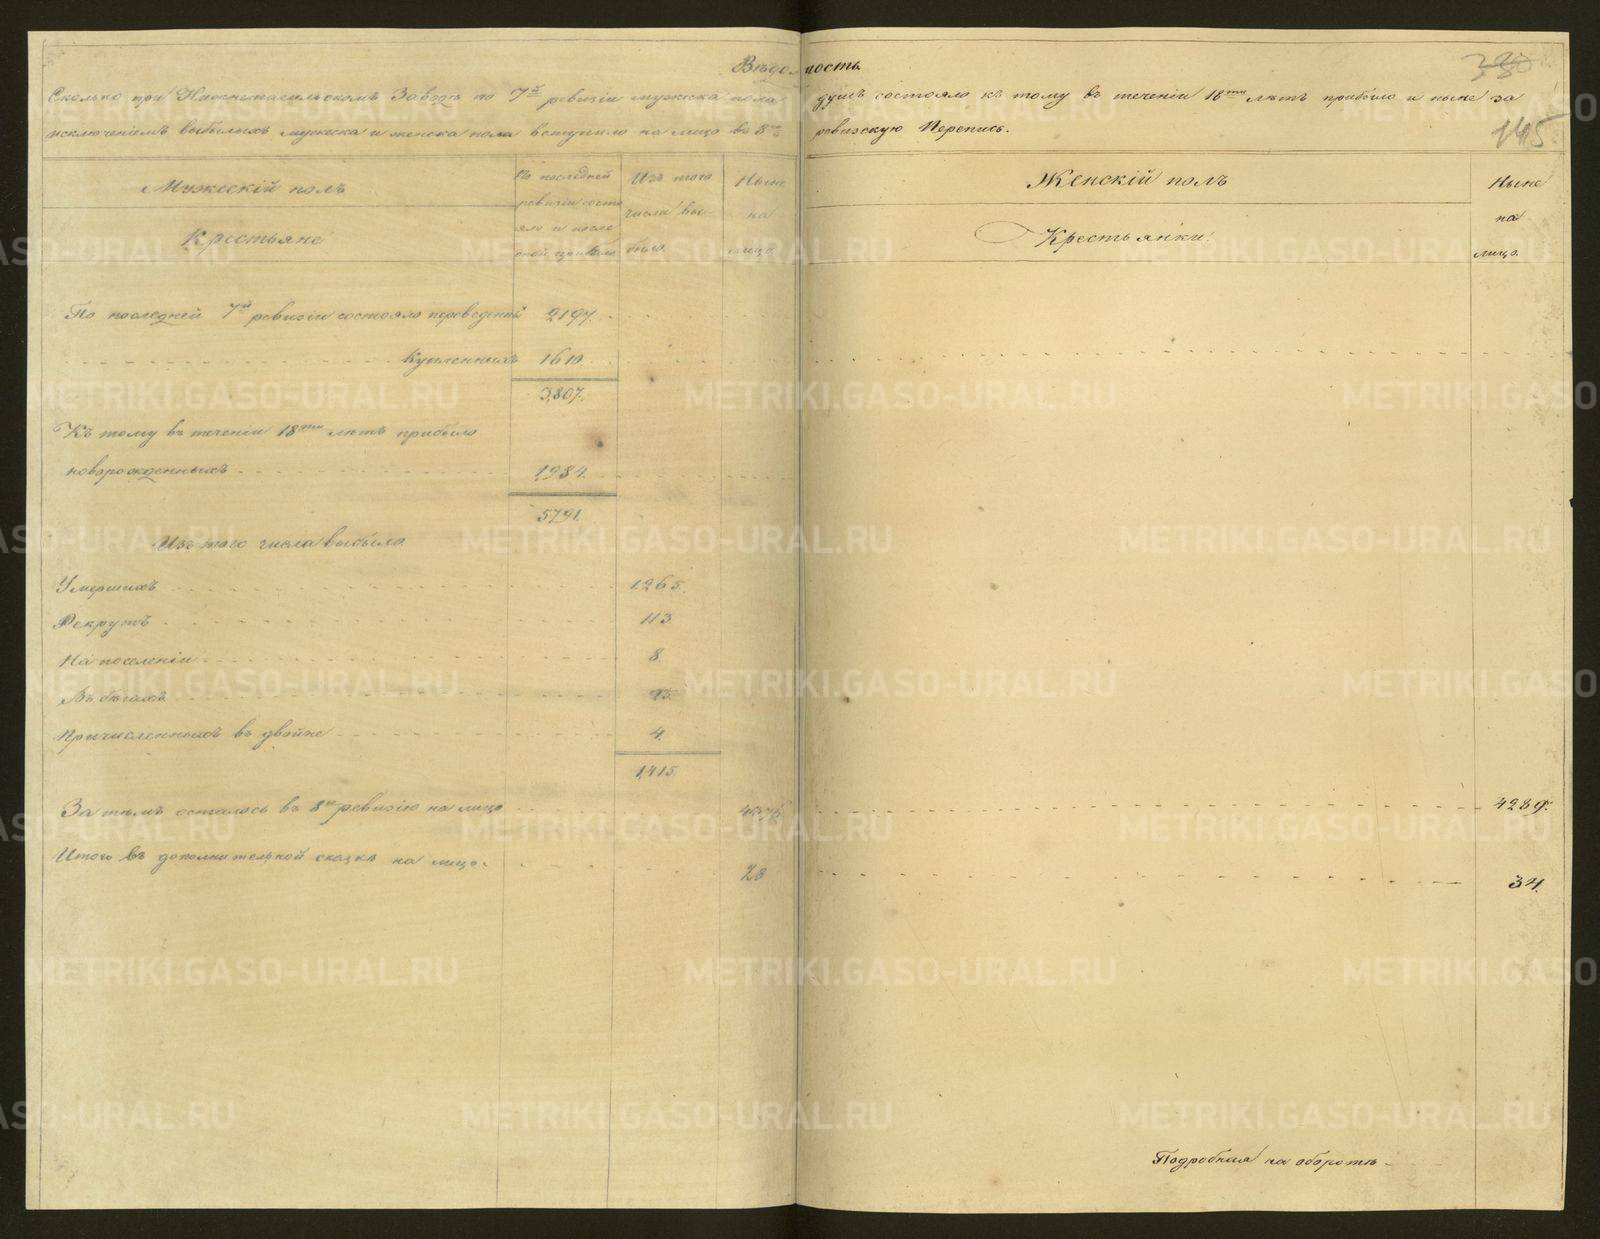 Вѣдомость
Сколько при Нижнетагильскомъ Заводѣ по 7й ревизіи мужска пола душъ состояло къ тому въ теченіи 18ти лѣтъ прибыло и ныне за
исключеніемъ выбылыхъ мужска и женска пола вступило на лицо въ 8ю ревизскую Перепись.
145
Мужескій полъ
Крестьяне
Въ последней
ревизіи состо
яло и после
оной прибыло
Изъ того
числа вы-
было.
Ныне
на
лицо.
Женскій полъ
Крестьянки.
Ныне
на
лицо.
По последней 7й ревизіи состояло переведенныхъ 2197.
Купленныхъ 1610.
3,807.
Къ тому въ теченіи 18ти лѣтъ прибыло
новорожденныхъ 1984.
5791.
Изъ того числа выбыло
Умершихъ 1265.
Рекрутъ 113.
На поселеніи 8.
Въ бѣгахъ
Причисленныхъ въ двойне 4.
1,415.
За тѣмъ осталось въ 8ю ревизію на лицо 4376. 4289.
Итого въ дополнительной сказкѣ на лицо. 28 34.
Подробная на оборотѣ
METRIKI.GASO-URAL.RU